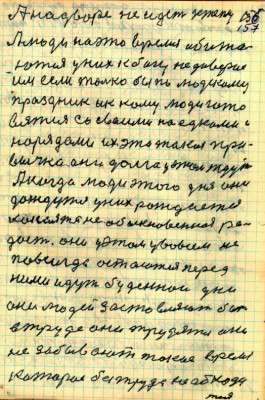 А на дворе не идет 156
157
А люди на это время обита
ются у них к богу недоверие
им если только быть людскому
праздник и к кому люди гото
вятся со своими наедками и
нарядами их эта такая при
вычка они долго этом ждут
А когда люди этого дня они
дождутся у них рождается
какая то не обыкновенная ра
дост. они этом уровень не
навсегда остаются перед
ними идут буденной дни
они людей заставляют быт
в труде они трудятся они
не забывают такие время
которые без труда не обхода
тся